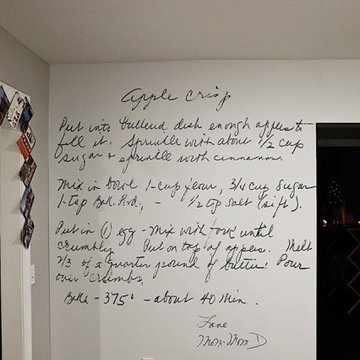 Apple Crisp
Put into buttered dish enough apples to
fill it. Sprinkle with about 1/2 cup
sugar & sprinkle with cinnamon.
Mix in bowl 1-cup flour, 3/4 cup sugar
1-tsp Bak. Pod., - 1/2 tsp salt (sift).
Put in (1) egg - mix with fork until
crumbly Put on top of apples. Melt
1/3 of a quarter pound of butter. Pour
over crumbs.
Bake - 375° - about 40 Min.
Love
Mom-Mom D